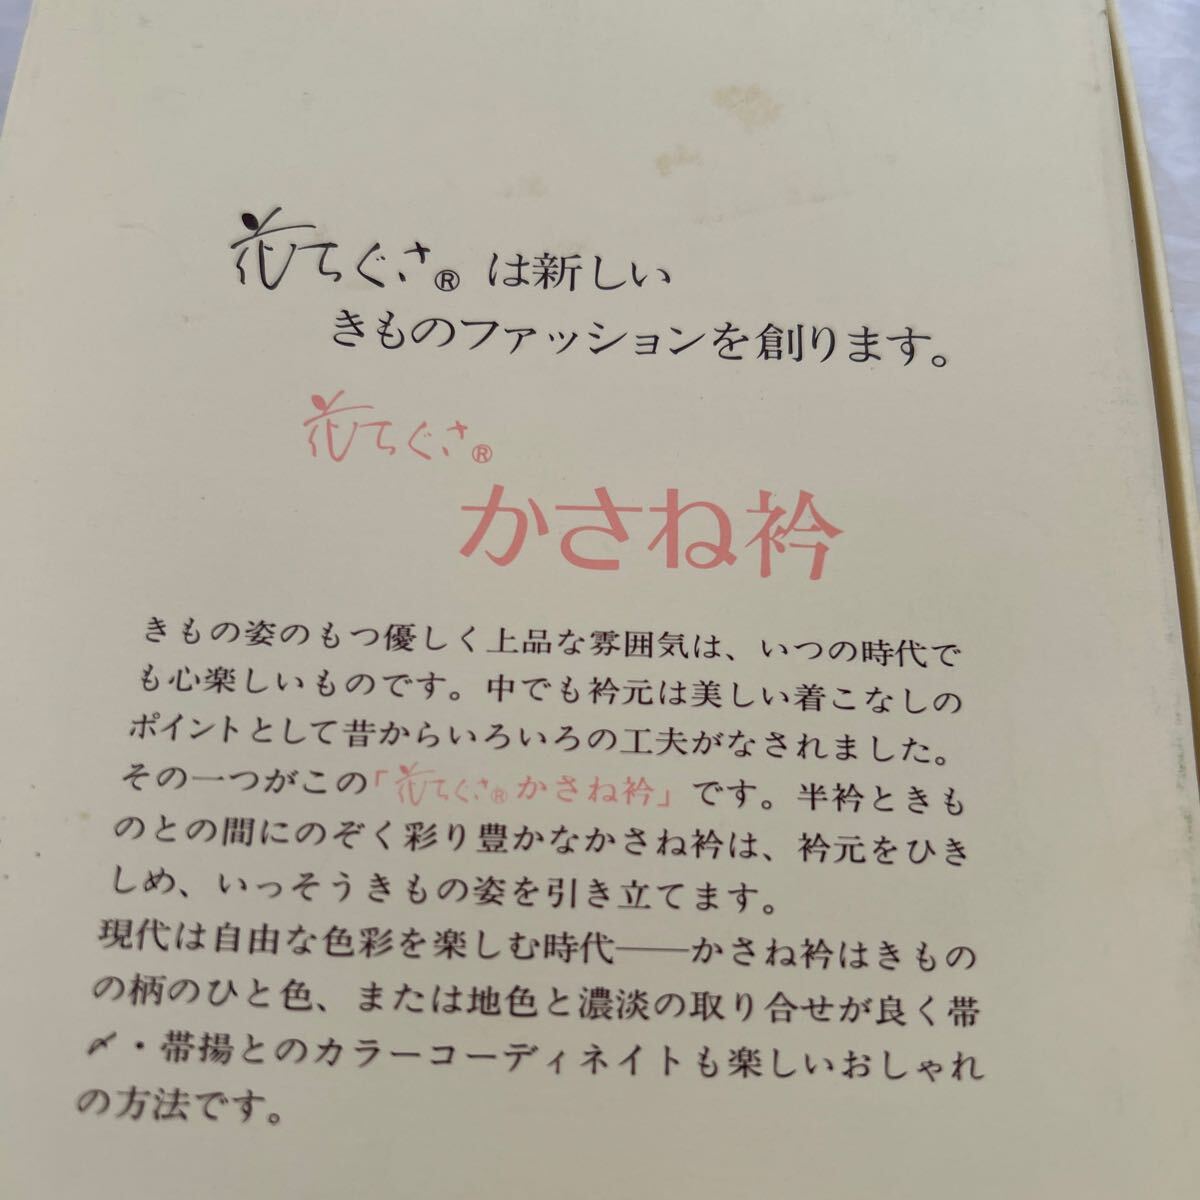 花てぐさ® は新しい
きものファッションを創ります。
花てぐさ®
かさね衿
きもの姿のもつ優しく上品な雰囲気は、いつの時代で
も心楽しいものです。中でも衿元は美しい着こなしの
ポイントとして昔からいろいろの工夫がなされました。
その一つがこの「花てぐさ®かさね衿」です。半衿ときも
のとの間にのぞく彩り豊かなかさね衿は、衿元をひき
しめ、いっそうきもの姿を引き立てます。
現代は自由な色彩を楽しむ時代――かさね衿はきもの
の柄のひと色、または地色と濃淡の取り合せが良く帯
〆・帯揚とのカラーコーディネイトも楽しいおしゃれ
の方法です。